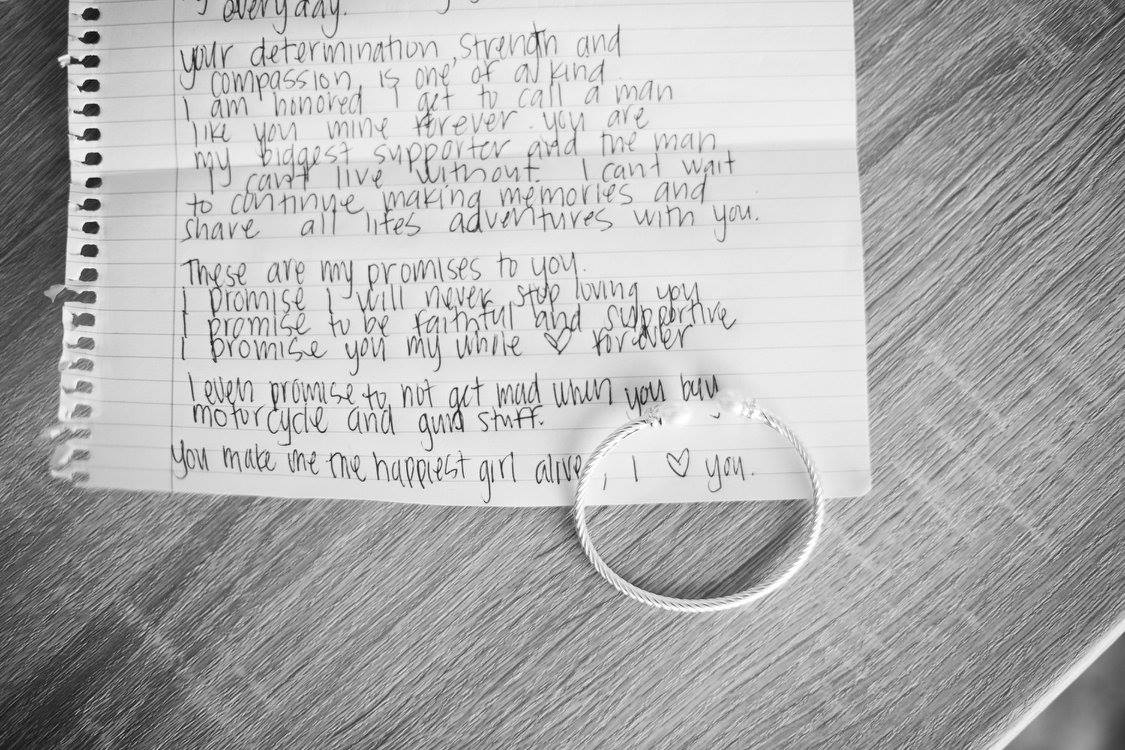 everyday.
your determination, strength and
compassion is one of a kind.
I am honored I get to call a man
like you mine forever. you are
my biggest supporter and the man
I can't live without. I can't wait
to continue making memories and
share all lifes adventures with you.
These are my promises to you.
I promise I will never stop loving you
I promise to be faithful and supportive
I promise you my whole ♡ forever
I even promise to not get mad when you buy
motorcycle and gun stuff.
You make me the happiest girl alive, I ♡ you.